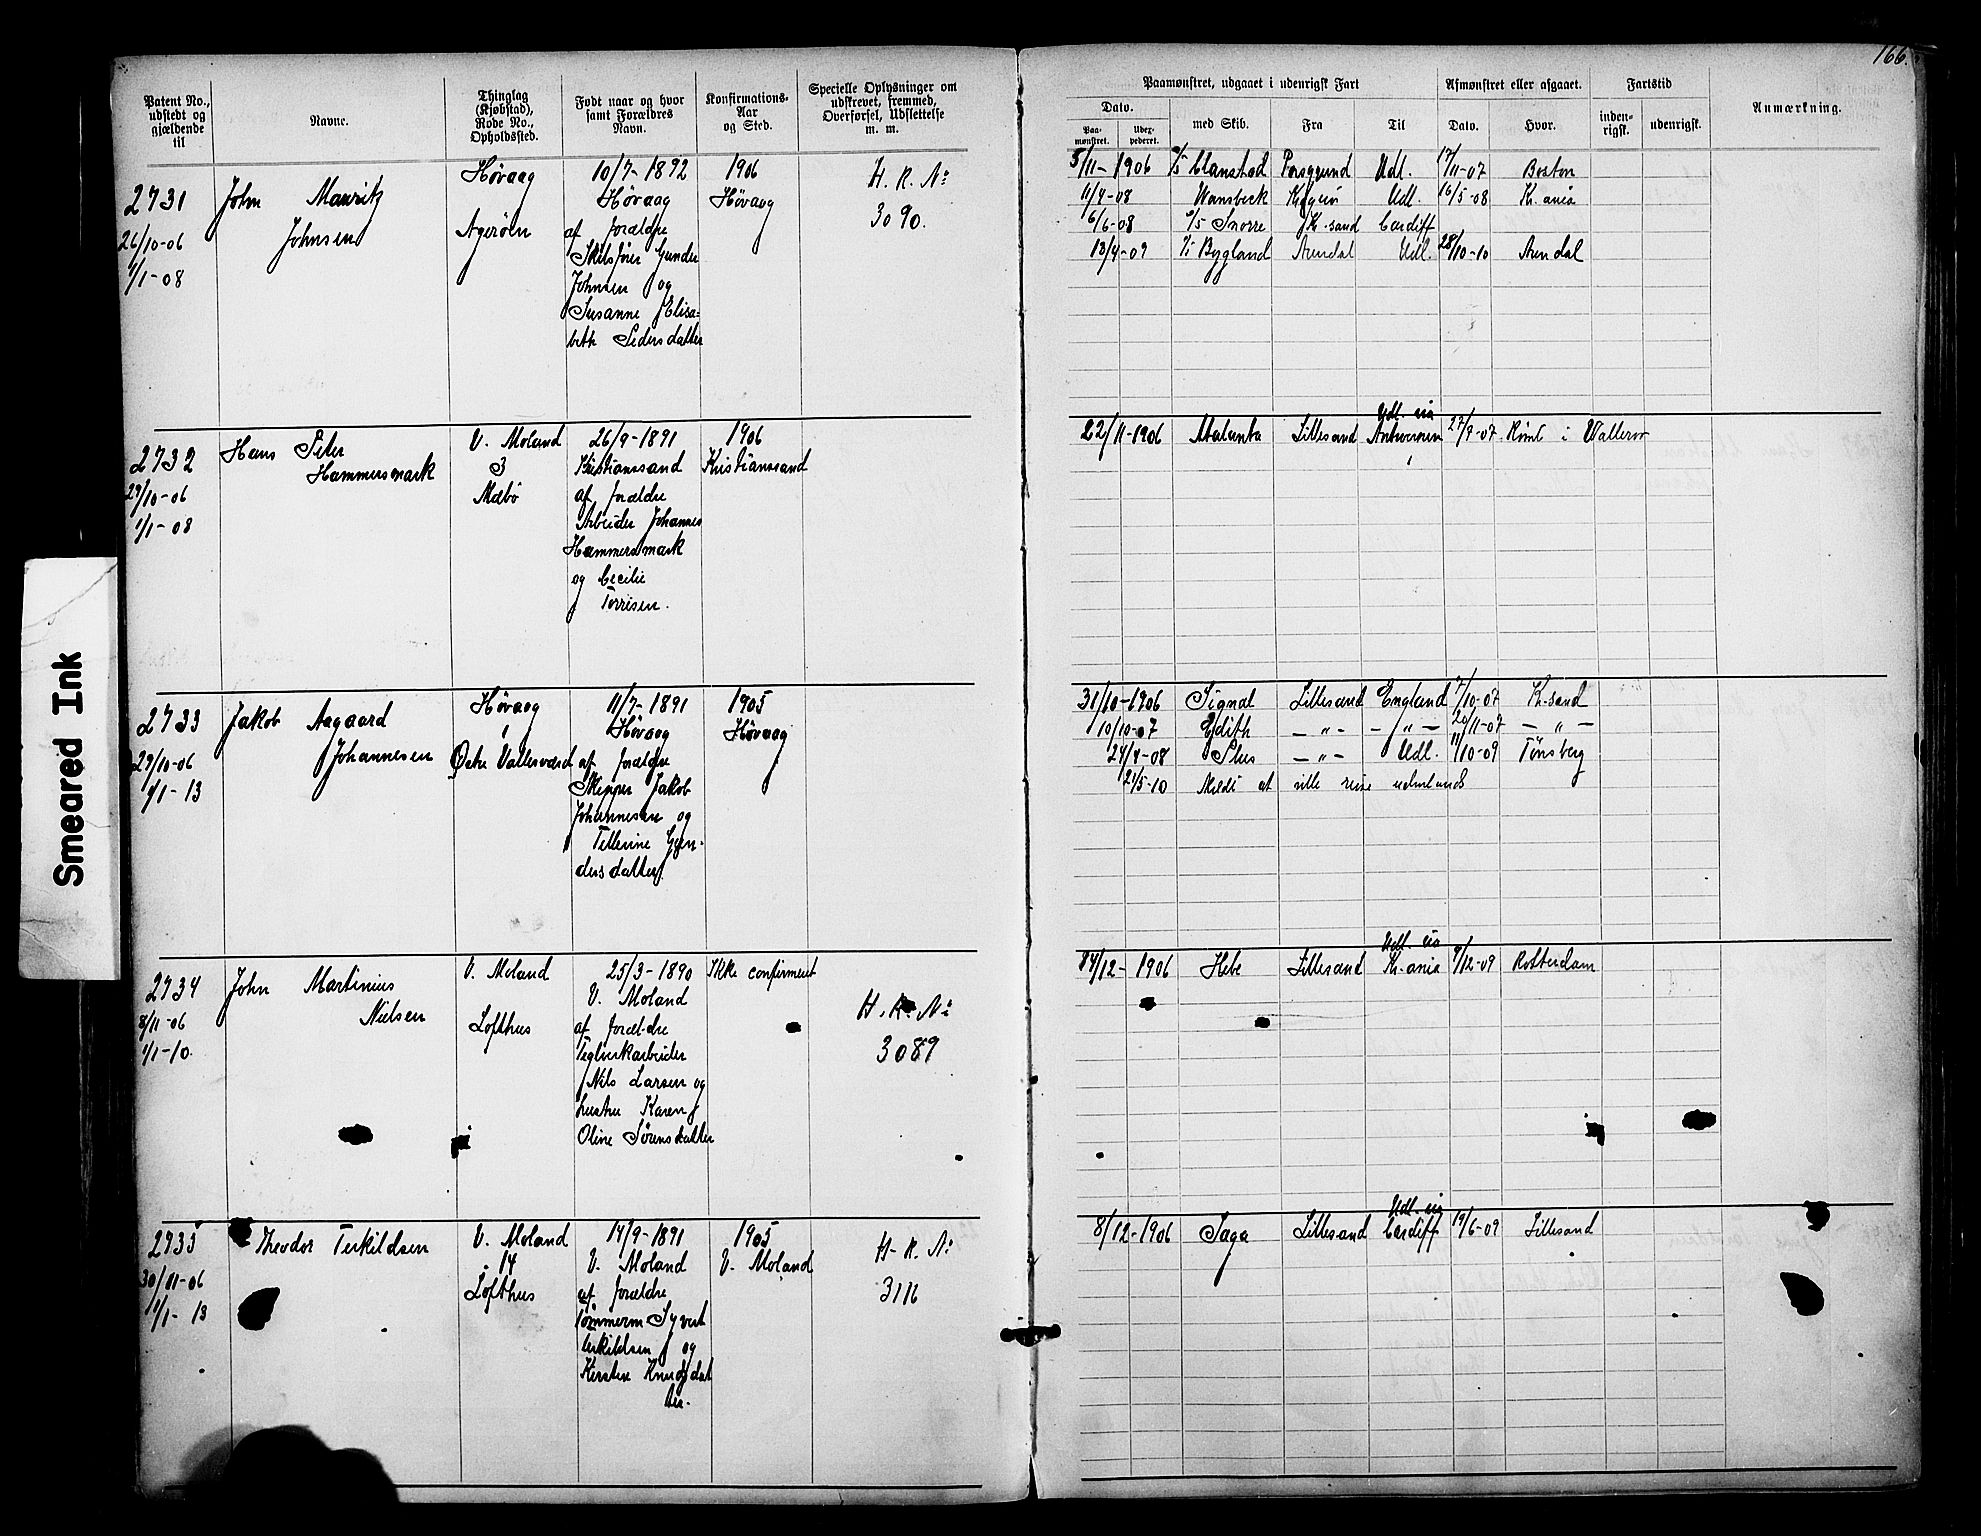 166.
Patent No., udstedt og gjældende til
Navne.
Thinglag (Kjøbstad), Rode No., Opholdssted.
Født naar og hvor samt Forældres Navn.
Konfirmations-Aar og Sted.
Specielle Oplysninger om udskrevet, fremmed, Overførsel, Udslettelse m. m.
Paamønstret, udgaaet i udenrigsk Fart
Afmønstret eller afgaaet.
Fartstid
Anmærkning.
Dato.
Paa-mønstret.
Udex-pederet.
med Skib.
Fra
Til
Dato.
Hvor.
inden-rigsk.
udenrigsk.
2731
26/10-06
1/1-08
John Mauritz
Johnsen
Høvaag
Agerøen
10/7-1892
Høvaag
af forældre
Gunder
Johnsen og
Susanne Elisa-
beth Pedersdatter
1906
Høvaag
H. R. No
3090.
5/11-1906 Porsgrund Udl. 17/11-07 Boston
11/4-08 Wansbeck Udl. 16/5-08 Kr.ania
6/6-08 Snorre Kr.sand Cardiff
13/4-09 Bygland Arendal Udl. 28/10-10 Arendal
2732
29/10-06
1/1-08
Hans Peter
Hammersmark
V. Moland
3
Mæbø
26/9-1891
Kristianssand
af forældre
Arbeider Johannes
Hammersmark
og Cecilie
Torrisen.
1906
Kristianssand
Udl. via
22/11-1906 Atalanta Lillesand Antwerpen 27/9-07 Rømt i Walleroo
2733
29/10-06
1/1-13
Jakob Aagaard
Johannesen
Høvaag
Østre Vallesværd
11/7-1891
Høvaag
af forældre
Skipper Jakob
Johannesen og
Tellerine Gun-
dersdatter
1905
Høvaag
31/10-1906 Signal Lillesand England 7/10-07 K.sand
10/10-07 Edith - „ - - „ - 20/11-07 - „ -
24/4-08 - „ - Udl. 11/10-09 Tønsberg
21/5-10 Meldt at ville reise udenlands
2734
8/11-06
1/1-10.
John Martinius
Nielsen
V. Moland
Lofthus
25/3-1890
V. Moland
af forældre
Teglverkarbeider
Nils Larsen og
hustru Karen
Oline Sørensdatter
Ikke confirmeret
H. R. No
3089
Udl. via
/12-1906 Hebe Lillesand Kr.ania 9/12-09 Rotterdam
2735
30/11-06
1/1-13
Theodor Terkildsen
V. Moland
14
Lofthus
14/9-1891
V. Moland
af forældre
Tømmerm Syvert
Terkildsen og
Kirstine Knudsdat
ter.
1905
V. Moland
H. R. No
3116
Udl. via
8/12-1906 Saga Lillesand Cardiff 19/6-09 Lillesand
Smeared Ink